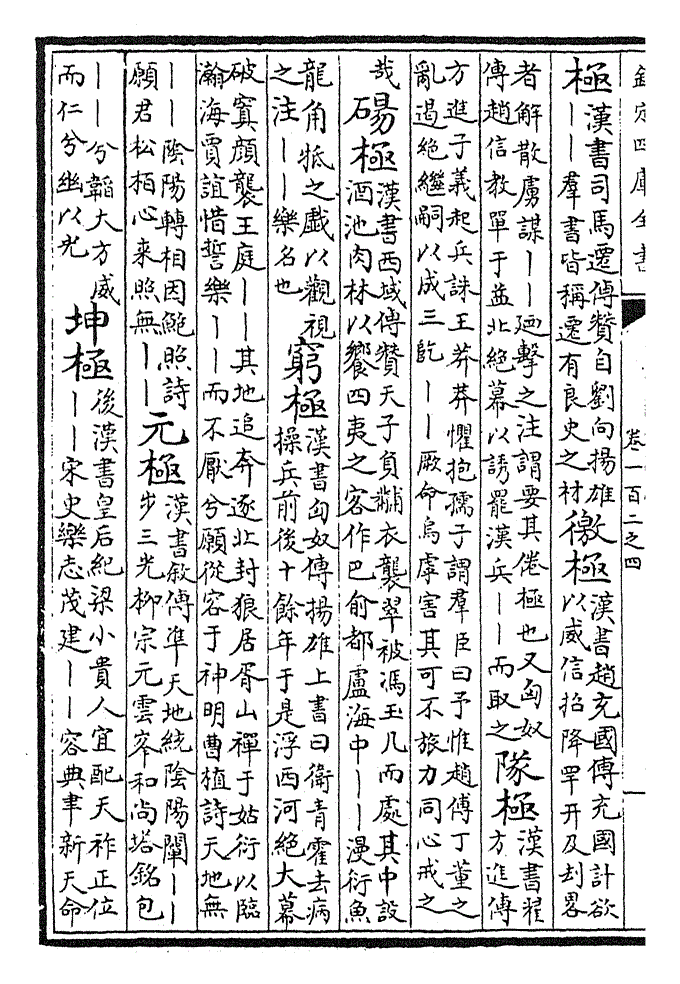 欽定四庫全書 卷一百二之四 一
極漢書司馬遷傳贊自劉向揚雄
——羣書皆稱遷有良史之材
徼極漢書趙充國傳充國計欲
以威信招降罕幵及刦畧
者解散虜謀——廼擊之注謂要其倦極也又匈奴
傳趙信教單于益北絶幕以誘罷漢兵——而取之
隊極漢書翟
方進傳
方進子義起兵誅王莽莽懼抱孺子謂羣臣曰予惟趙傅丁董之
亂遏絶繼嗣以成三䶊——厥命烏虖害其可不旅力同心戒之
哉
碭極漢書西域傳贊天子負黼衣襲翠被馮玉几而處其中設
酒池肉林以饗四夷之客作巴俞都盧海中——漫衍魚
龍角觝之戲以觀視
之注——樂名也
窮極漢書匈奴傳揚雄上書曰衛青霍去病
操兵前後十餘年于是浮西河絶大幕
破窴顔襲王庭——其地追奔逐北封狼居胥山禪于姑衍以臨
瀚海賈誼惜誓樂——而不厭兮願從容于神明曹植詩天地無
——陰陽轉相因鮑照詩
願君松栢心来照無——
元極漢書敘傳凖天地統陰陽闡——
步三光柳宗元雲峯和尚塔銘包
——兮韜大方威
而仁兮幽以光
坤極後漢書皇后紀梁小貴人宜配天祚正位
——宋史樂志茂建——容典聿新天命